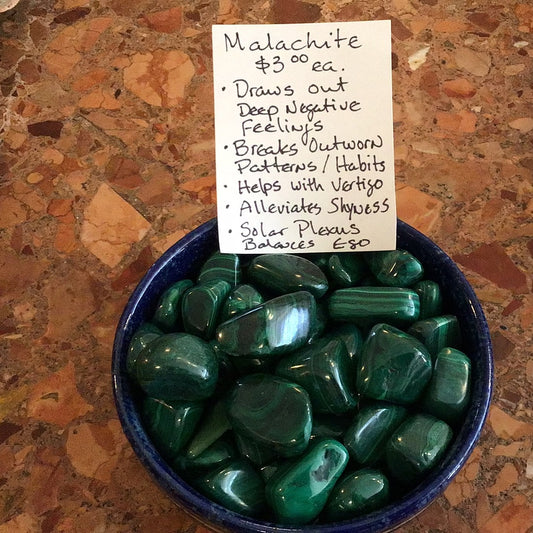 Malachite
$3.00 ea.
• Draws out
Deep Negative
Feelings
• Breaks Outworn
Patterns / Habits
• Helps with Vertigo
• Alleviates Shyness
• Solar Plexus
Balances Ego